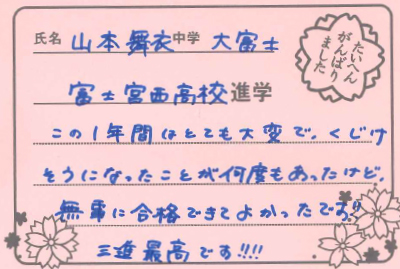 氏名 山本舞衣 中学 大富士
富士宮西高校 進学
この1年間はとても大変で、くじけ
そうになったことが何度もあったけど、
無事に合格できてよかったです!!
三進最高です!!!!
たいへん
がんばり
ました